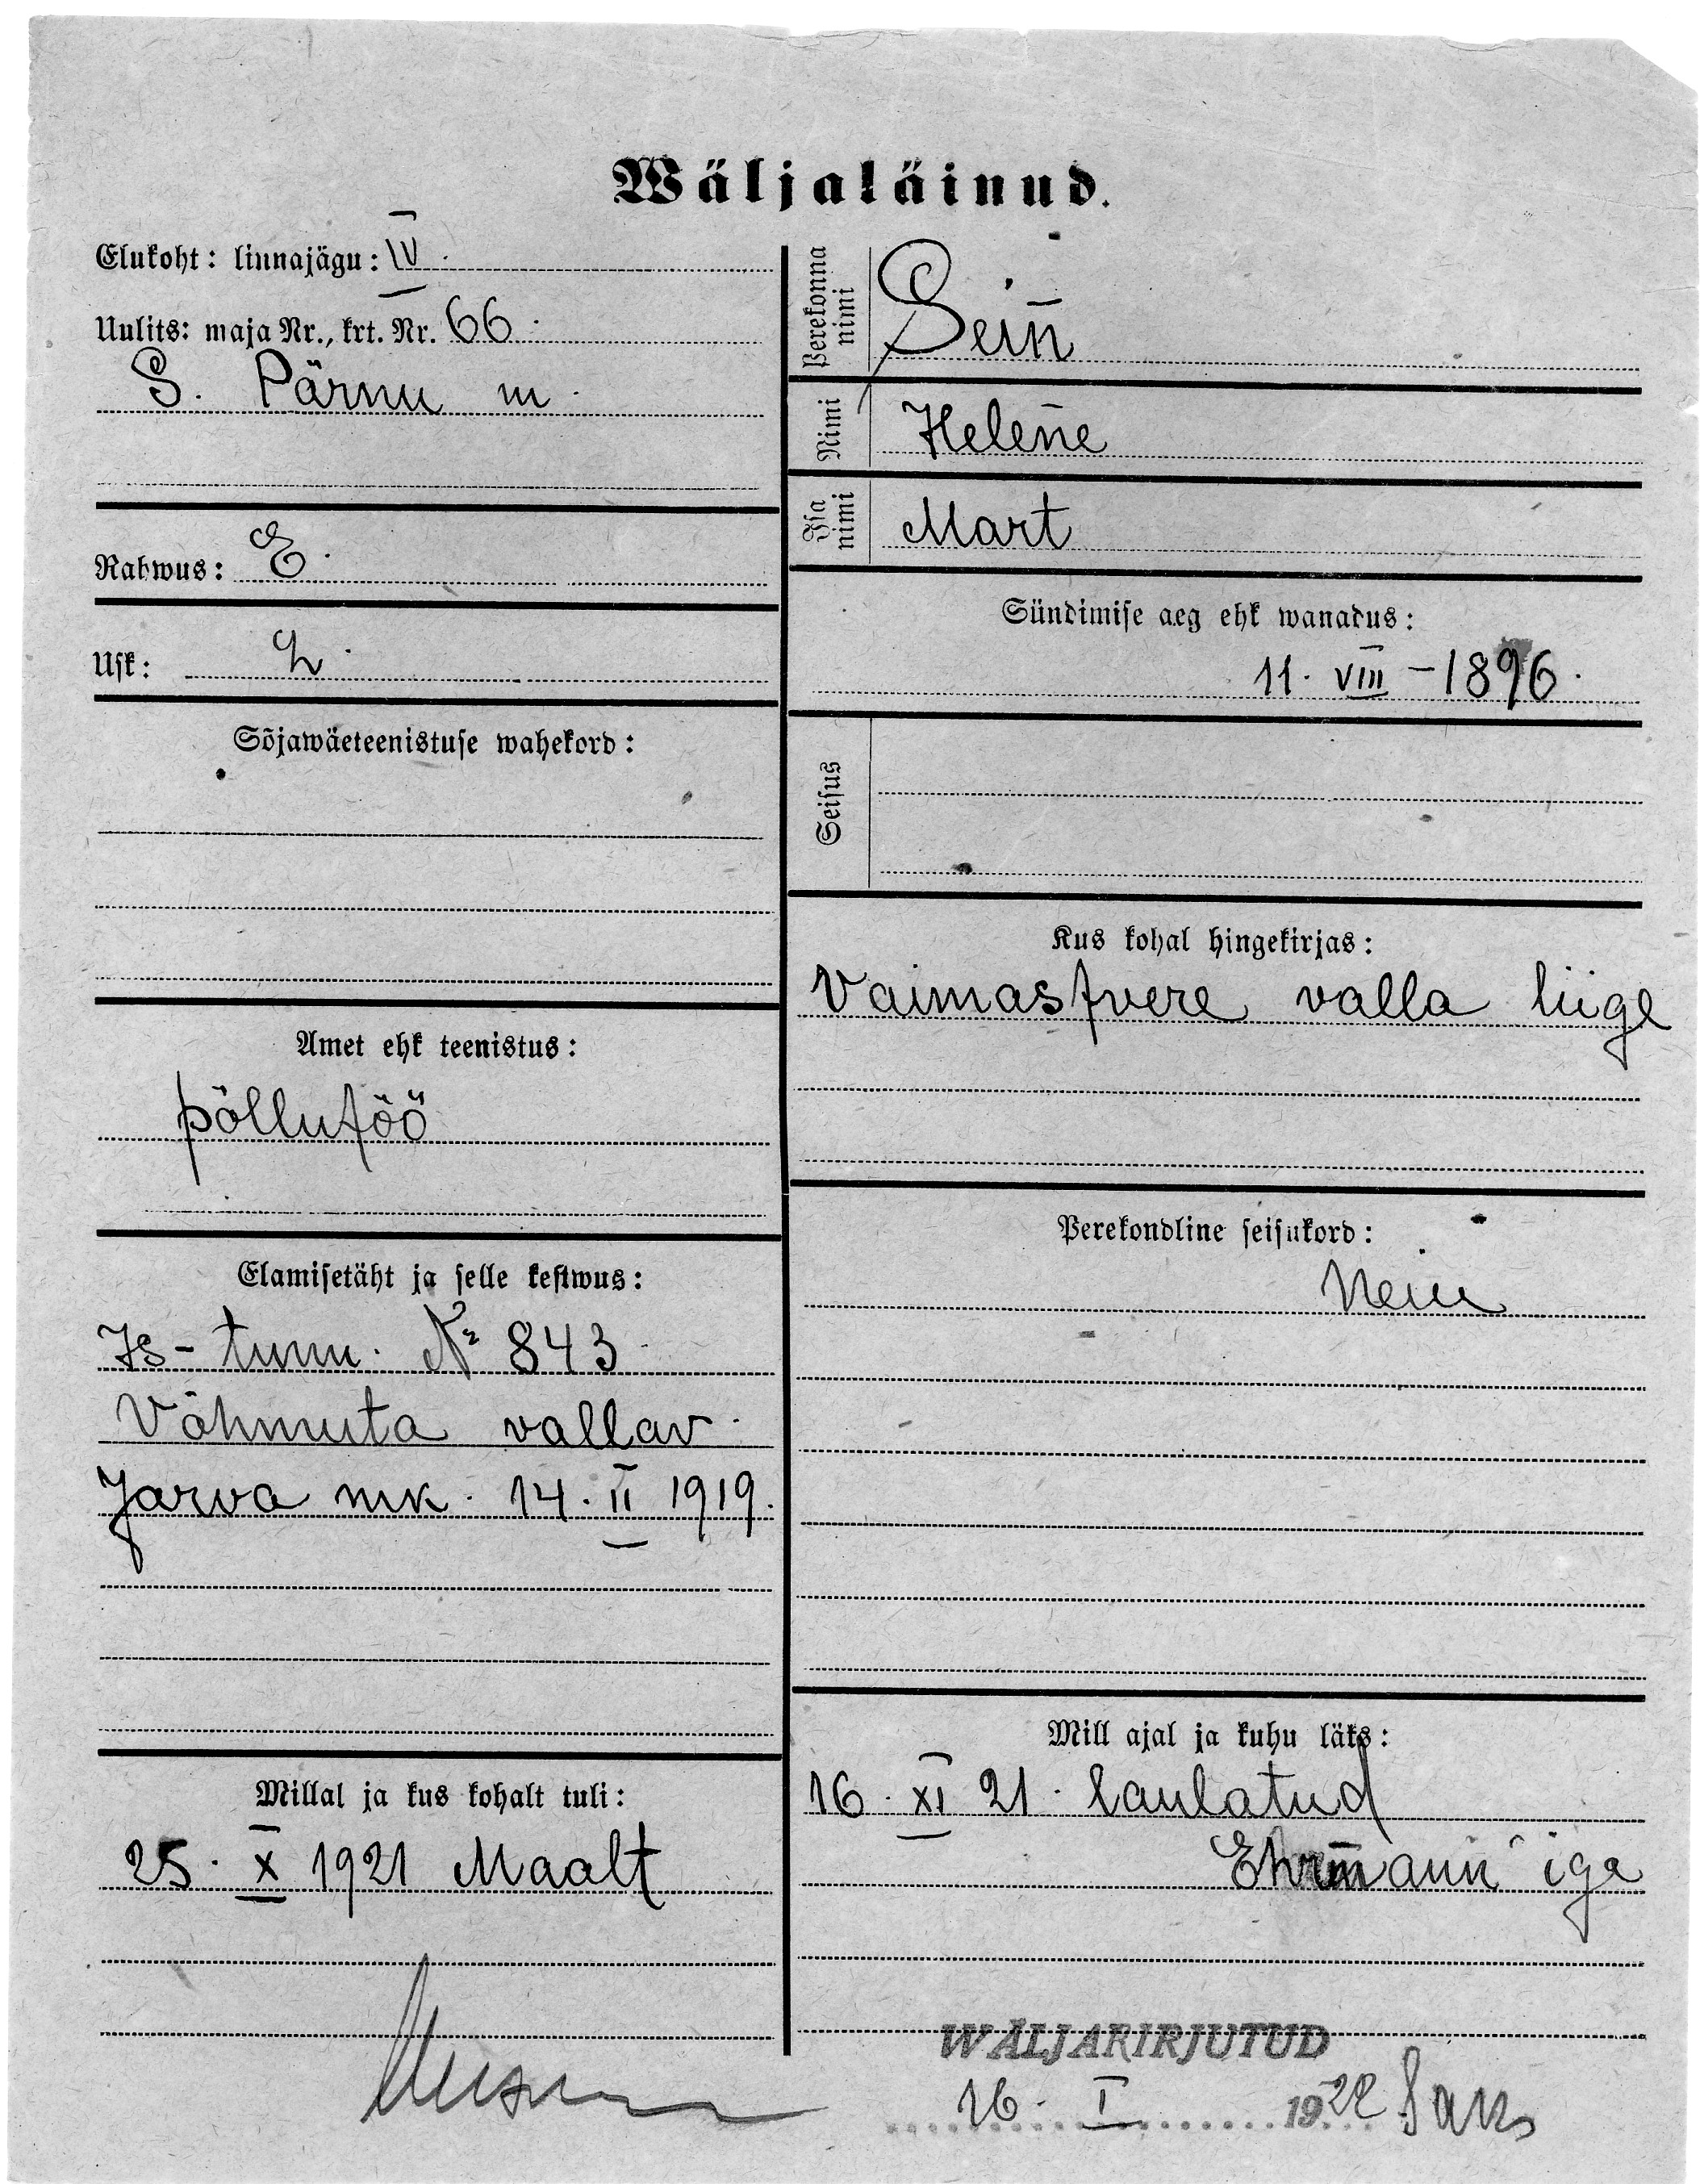 Wäljaläinud.
Elukoht: linnajägu: IV.
Uulits: maja Nr., krt. Nr. 66.
S. Pärnu m.
Rahwus: E.
Usk: L.
Sõjawäeteenistuse wahekord:
Amet ehk teenistus:
põllutöö
Elamisetäht ja selle kestwus:
Is-tunn. № 843
Võhmuta vallav.
Jarva mk. 14. II 1919.
Millal ja kus kohalt tuli:
25. X 1921 Maalt
Perekonna nimi Sein
Nimi Helene
Isa nimi Mart
Sündimise aeg ehk wanadus:
11. VIII - 1896.
Seisus
Kus kohal hingekirjas:
Vaimastvere valla liige
Perekondline seisukord:
Neiu
Mill ajal ja kuhu läks:
16. XI 21. Laulatud
Ehrmann'iga
WÄLJAKIRJUTUD
16. I 1922